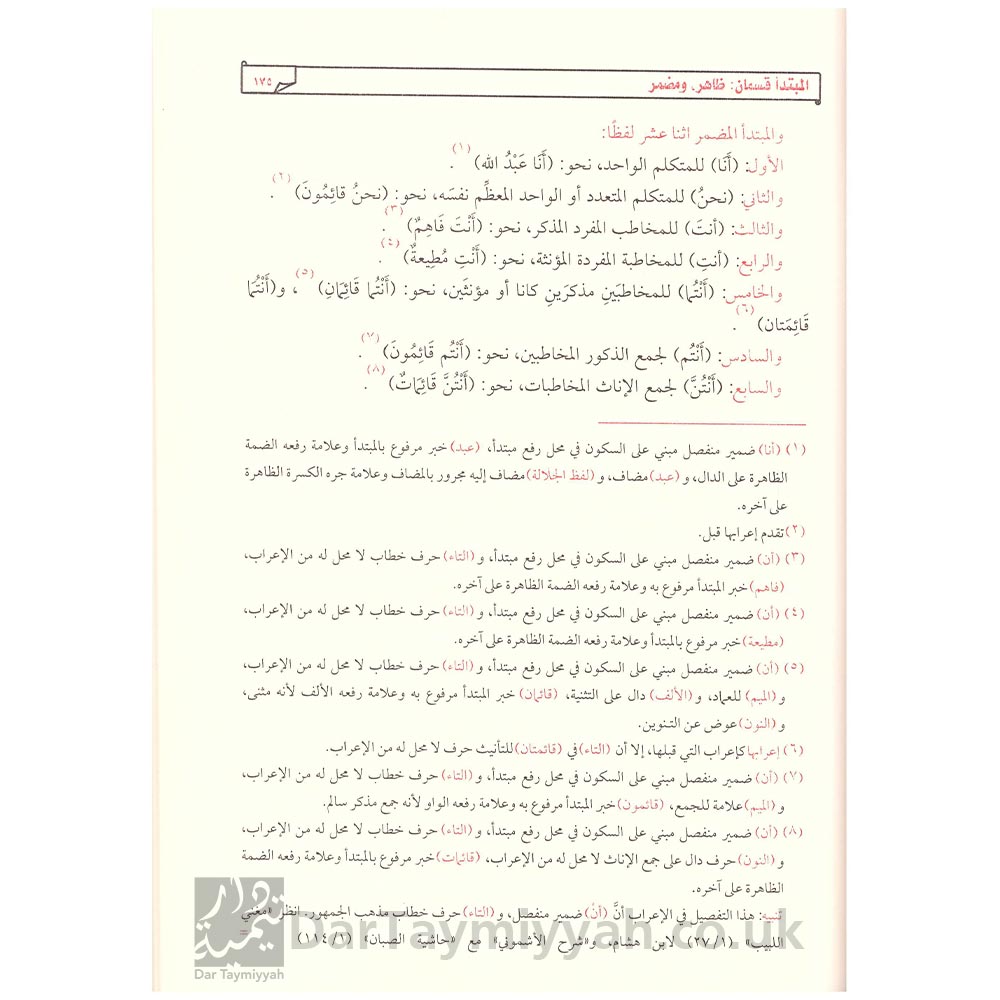 المبتدأ قسمان: ظاهر، ومضمر
١٧٥
والمبتدأ المضمر اثنا عشر لفظًا:
الأول: (أَنَا) للمتكلم الواحد، نحو: (أَنَا عَبْدُ الله) (١).
والثاني: (نحنُ) للمتكلم المتعدد أو الواحد المعظِّم نفسَه، نحو: (نحنُ قائِمُونَ) (٢).
والثالث: (أنتَ) للمخاطب المفرد المذكر، نحو: (أَنْتَ فَاهِمٌ) (٣).
والرابع: (أنتِ) للمخاطبة المفردة المؤنثة، نحو: (أَنْتِ مُطِيعةٌ) (٤).
والخامس: (أَنْتُما) للمخاطبَينِ مذكرَينِ كانا أو مؤنثَين، نحو: (أَنْتُما قَائِمَانِ) (٥)، و(أَنْتُمَا
قَائِمَتان) (٦).
والسادس: (أَنْتُم) لجمع الذكور المخاطبين، نحو: (أَنْتُم قَائِمُونَ) (٧).
والسابع: (أَنْتُنَّ) لجمع الإناث المخاطبات، نحو: (أَنْتُنَّ قَائِمَاتٌ) (٨).
(١) (أنا) ضمير منفصل مبني على السكون في محل رفع مبتدأ، (عبد) خبر مرفوع بالمبتدأ وعلامة رفعه الضمة
الظاهرة على الدال، و(عبد) مضاف، و(لفظ الجلالة) مضاف إليه مجرور بالمضاف وعلامة جره الكسرة الظاهرة
على آخره.
(٢) تقدم إعرابها قبل.
(٣) (أن) ضمير منفصل مبني على السكون في محل رفع مبتدأ، و(التاء) حرف خطاب لا محل له من الإعراب،
(فاهم) خبر المبتدأ مرفوع به وعلامة رفعه الضمة الظاهرة على آخره.
(٤) (أن) ضمير منفصل مبني على السكون في محل رفع مبتدأ، و(التاء) حرف خطاب لا محل له من الإعراب،
(مطيعة) خبر مرفوع بالمبتدأ وعلامة رفعه الضمة الظاهرة على آخره.
(٥) (أن) ضمير منفصل مبني على السكون في محل رفع مبتدأ، و(التاء) حرف خطاب لا محل له من الإعراب،
و(الميم) للعماد، و(الألف) دال على التثنية، (قائمان) خبر المبتدأ مرفوع به وعلامة رفعه الألف لأنه مثنى،
و(النون) عوض عن التنوين.
(٦) إعرابها كإعراب التي قبلها، إلا أن (التاء) في (قائمتان) للتأنيث حرف لا محل له من الإعراب.
(٧) (أن) ضمير منفصل مبني على السكون في محل رفع مبتدأ، و(التاء) حرف خطاب لا محل له من الإعراب،
و(الميم) علامة للجمع، (قائمون) خبر المبتدأ مرفوع به وعلامة رفعه الواو لأنه جمع مذكر سالم.
(٨) (أن) ضمير منفصل مبني على السكون في محل رفع مبتدأ، و(التاء) حرف خطاب لا محل له من الإعراب،
و(النون) حرف دال على جمع الإناث لا محل له من الإعراب، (قائمات) خبر مرفوع بالمبتدأ وعلامة رفعه الضمة
الظاهرة على آخره.
تنبيه: هذا التفصيل في الإعراب أنَّ (أنْ) ضمير منفصل، و(التاء) حرف خطاب مذهب الجمهور. انظر «مغني
اللبيب» (٢٧/١) لابن هشام، و«شرح الأشموني» مع «حاشية الصبان» (١١٤/١)
دار تيمية
Dar Taymiyyah
DarTaymiyyah.co.uk